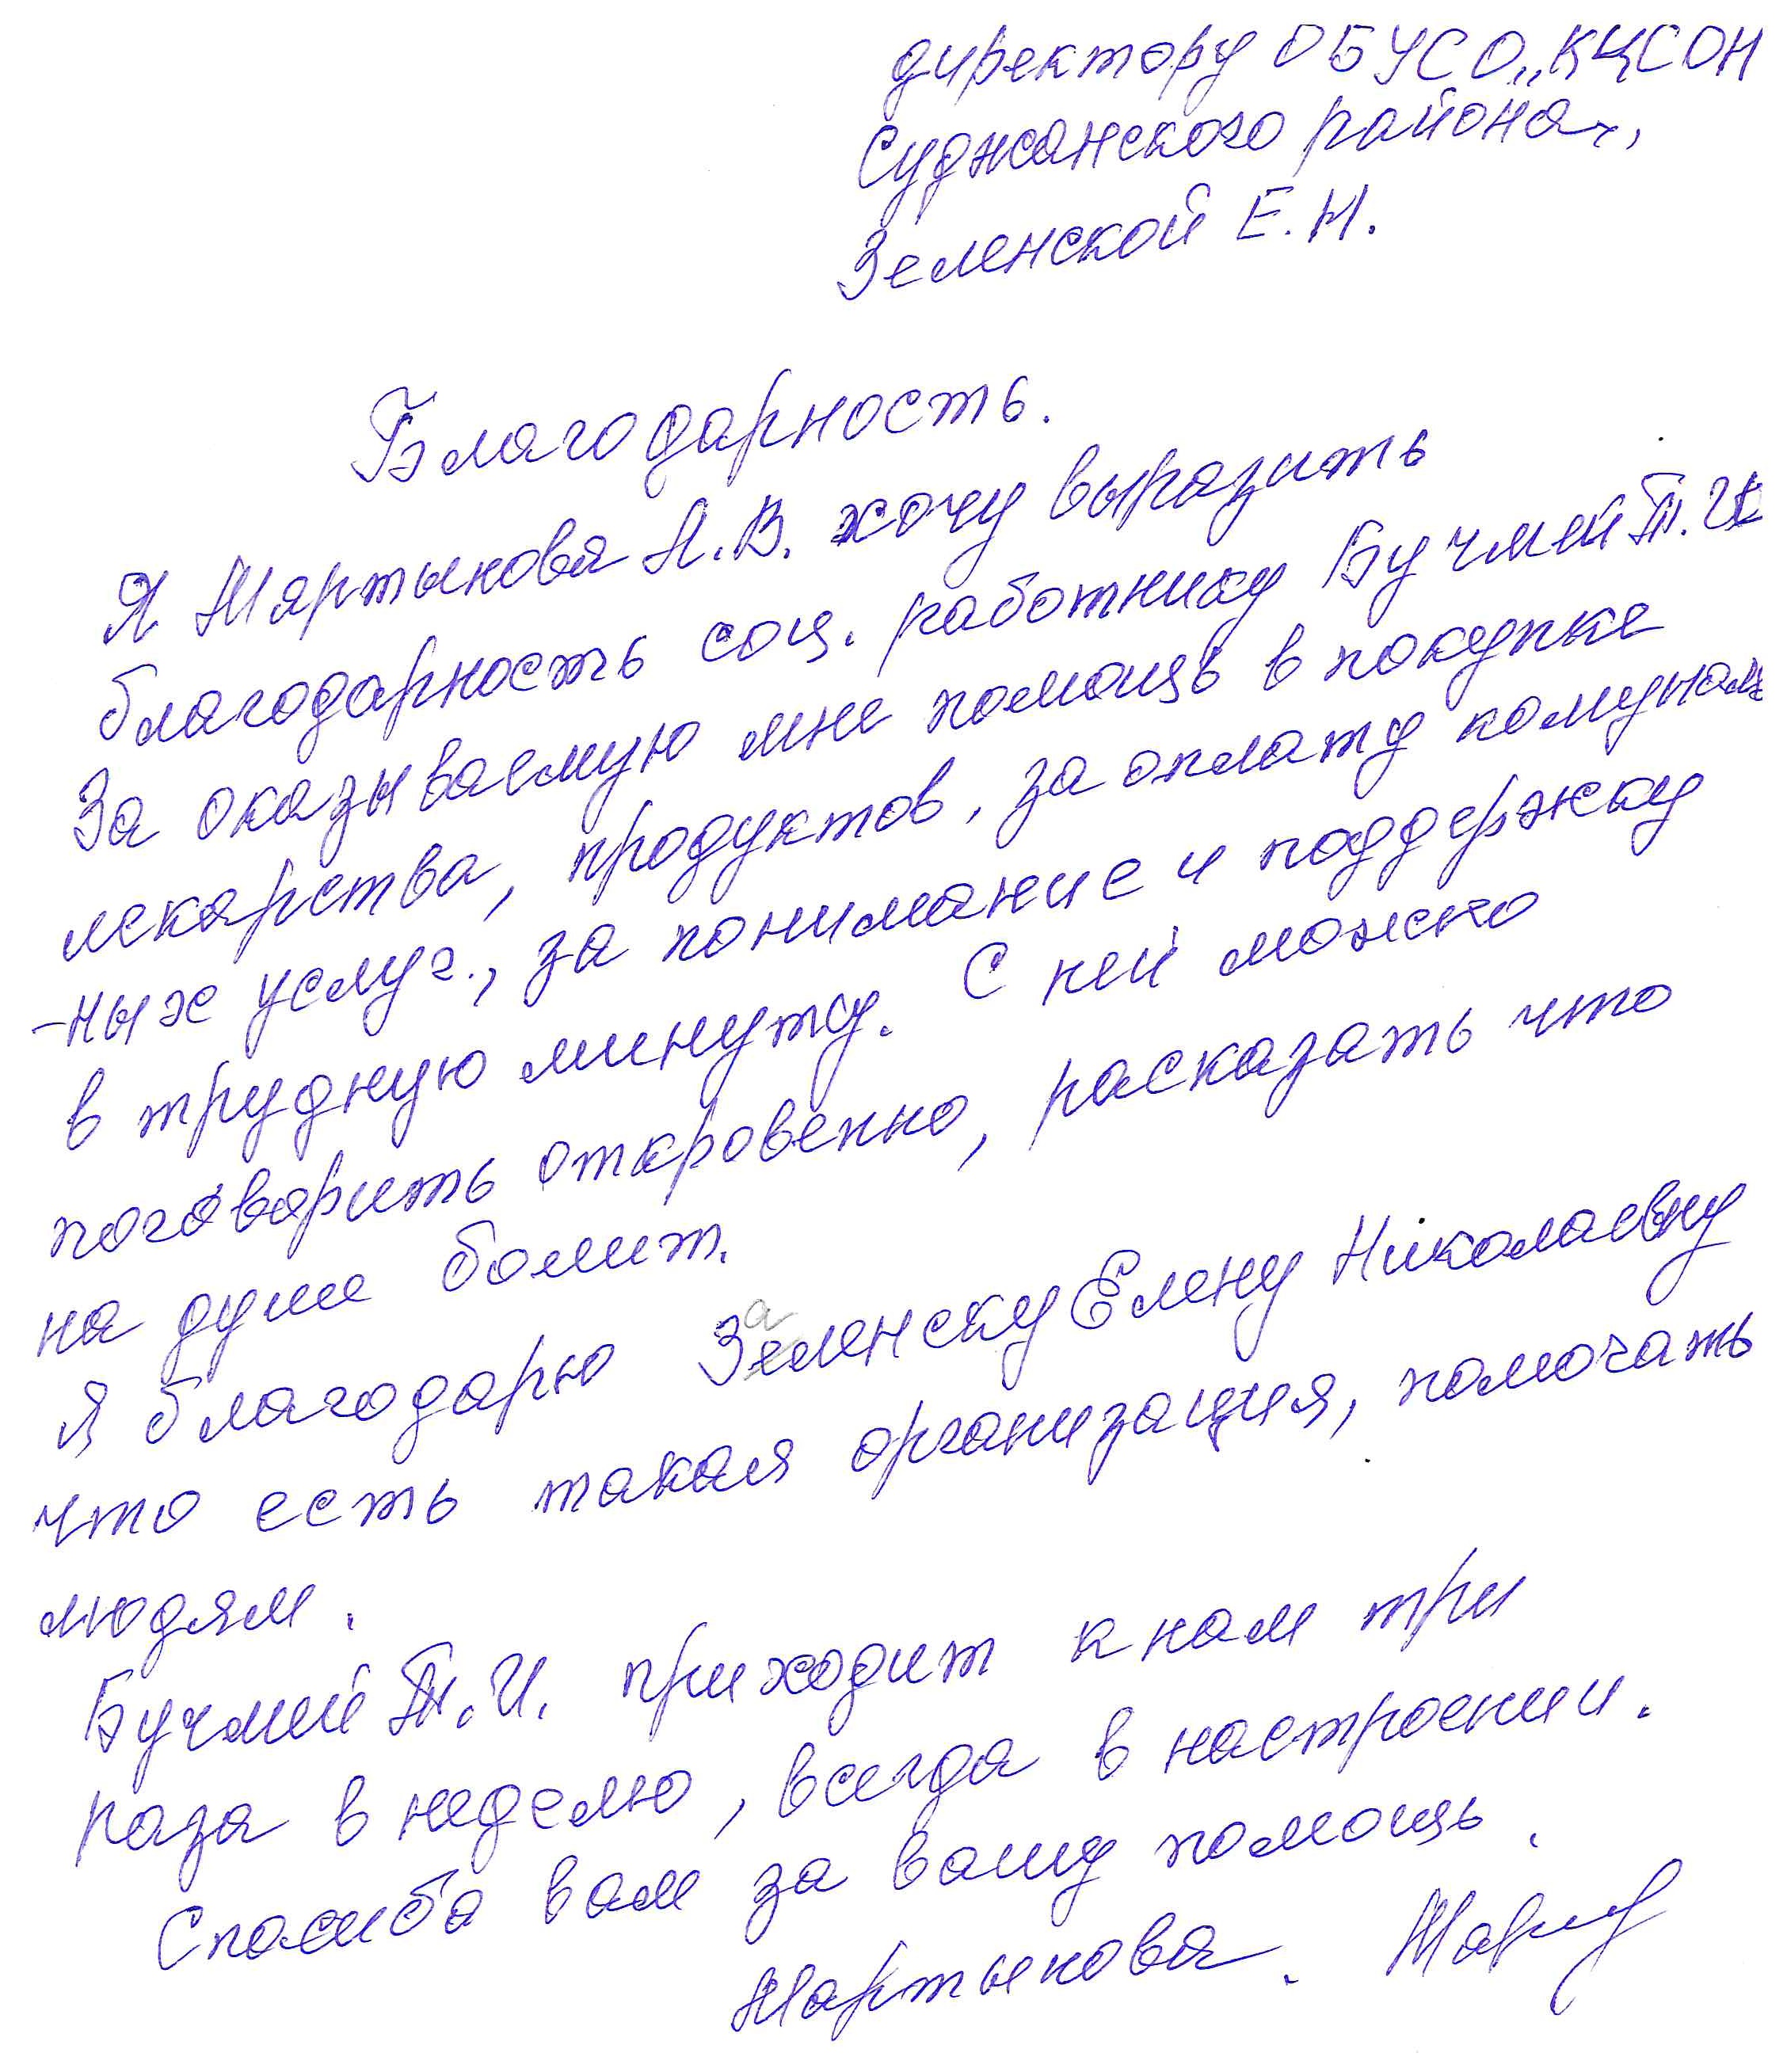 директору ОБУСО „КЦСОН
Суджанского района",
Зеленской Е.Н.
Благодарность.
Я Мартынова Н.В. хочу выразить
благодарность соц. работнику Бучмей Т.И
За оказываемую мне помощь в покупке
лекарства, продуктов, за оплату комуналь
-ных услуг., за понимание и поддержку
в трудную минуту. С ней можно
поговорить откровенно, расказать что
на душе болит.
Я благодарю Зеленску Елену Николаевну
что есть такая организация, помогать
людям.
Бучмей Т.И. приходит к нам три
раза в неделю, всегда в настроении.
Спасиба вам за вашу помощь.
Мартынова.